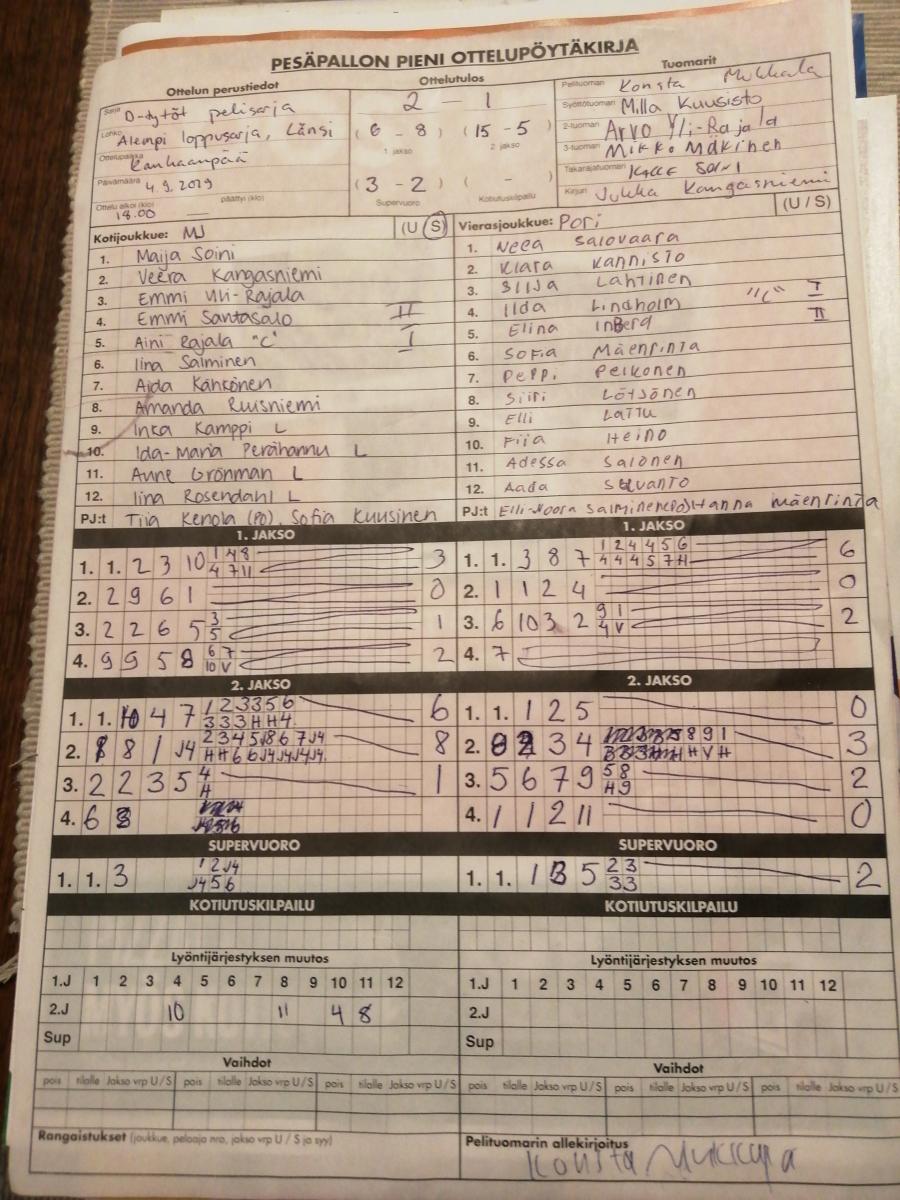 PESÄPALLON PIENI OTTELUPÖYTÄKIRJA
Ottelun perustiedot
Ottelutulos
Tuomarit
Sarja D-tytöt pelisarja
Lohko Alempi loppusarja, Länsi
Ottelupaikka Kankaanpää
Päivämäärä 4.9.2019
Ottelu alkoi (klo) 18.00 päättyi (klo) —
2 – 1
(6 – 8) (15 – 5)
1. jakso 2. jakso
(3 – 2) ( – )
Supervuoro Kotiutuskilpailu
Pelituomari Konsta Mukkala
Syöttötuomari Milla Kuusisto
2-tuomari Arvo Yli-Rajala
3-tuomari Mikko Mäkinen
Takarajatuomari Kalle Soini
Kirjuri Jukka Kangasniemi
Kotijoukkue: MJ (U/S)
1. Maija Soini
2. Veera Kangasniemi
3. Emmi Yli-Rajala
4. Emmi Santasalo II
5. Aini Rajala "C" I
6. Iina Salminen
7. Aida Kähkönen
8. Amanda Ruisniemi
9. Inka Kamppi L
10. Ida-Maria Perähannu L
11. Anne Grönman L
12. Iina Rosendahl L
PJ:t Tiia Kenola (PO), Sofia Kuusinen
Vierasjoukkue: Pori (U/S)
1. Neea Salovaara
2. Klara Kannisto
3. Silja Lahtinen
4. Ilda Lindholm "C" I
5. Elina Inberg II
6. Sofia Mäenrinta
7. Peppi Pelkonen
8. Siiri Lötjönen
9. Elli Lattu
10. Fiia Heino
11. Adessa Salonen
12. Aada Silvanto
PJ:t Elli-Noora Salminen(PO) Hanna Mäenrinta
1. JAKSO
1. 1. 2 3 10 1 4 8 3
4 7 11
2. 2 9 6 1 0
3. 2 2 6 5 3 1
5
4. 9 9 5 8 6 7 2
10 V
1. JAKSO
1. 1. 3 8 7 1 2 4 4 5 6 6
4 4 4 5 7 H
2. 1 1 2 4 0
3. 6 10 3 2 9 1 2
4 V
4. 7
2. JAKSO
1. 1. 10 4 7 1 2 3 3 5 6 6
3 3 3 H H 4
2. 8 8 1 J4 2 3 4 5 J8 6 7 J4 8
H H 6 6 J4 J4 J4 J4
3. 2 2 3 5 4 1
H
4. 6 8
2. JAKSO
1. 1. 1 2 5 0
2. 3 4 5 8 9 1 3
H V H
3. 5 6 7 9 5 8 2
H 9
4. 1 1 2 11 0
SUPERVUORO
1. 1. 3 1 2 J4
J4 5 6
SUPERVUORO
1. 1. 1 3 5 2 3 2
3 3
KOTIUTUSKILPAILU
KOTIUTUSKILPAILU
Lyöntijärjestyksen muutos
1.J 1 2 3 4 5 6 7 8 9 10 11 12
2.J 10 11 4 8
Sup
Lyöntijärjestyksen muutos
1.J 1 2 3 4 5 6 7 8 9 10 11 12
2.J
Sup
Vaihdot
pois tilalle Jakso vrp U/S pois tilalle Jakso vrp U/S pois tilalle Jakso vrp U/S
Vaihdot
pois tilalle Jakso vrp U/S pois tilalle Jakso vrp U/S pois tilalle Jakso vrp U/S
Rangaistukset (joukkue, pelaaja nro, jakso vrp U / S ja syy)
Pelituomarin allekirjoitus
Konsta Mukkala